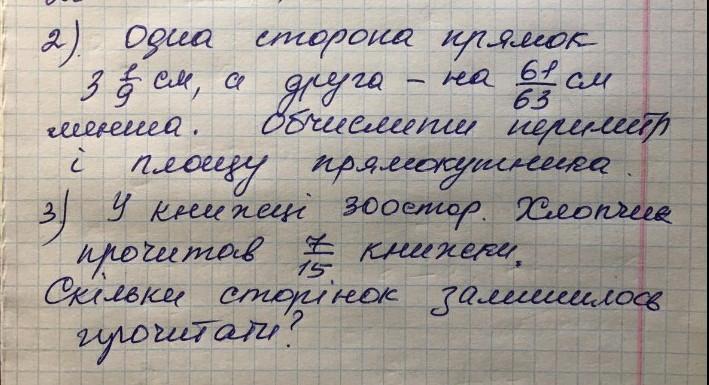 2). Одна сторона прямок
3 1/9 см, а друга – на 61/63 см
менша. Обчислити периметр
і площу прямокутника.
3) У книжці 300 стор. Хлопчик
прочитав 7/15 книжки.
Скільки сторінок залишилось
прочитати?